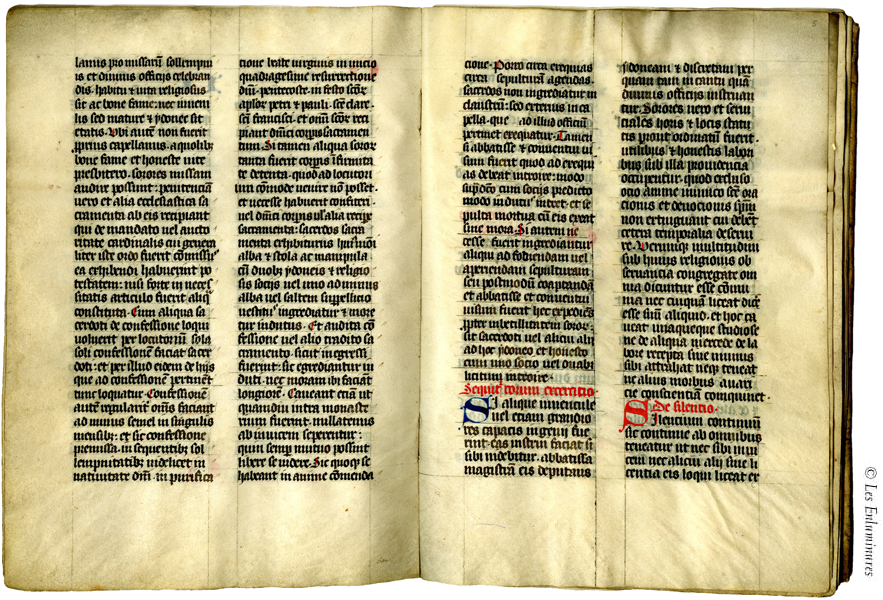 lanus pro missarum sollempni
is et diuinis officijs celebran
dis habitu et uita religiosus
sit ac bone fame: nec iuueni
lis sed mature et ydonee sit
etatis. Vbi autē non fuerit
proprius capellanus. a quolibȝ
bone fame et honeste uite
presbitero. sorores missam
audire possint: penitenciā
uero et alia ecclesiastica sa
cramenta ab eis recipiant
qui de mandato uel aucto
ritate cardinalis cui genera
liter iste ordo fuerit cōmissꝰ
ea exhibendi habuerint po
testatem: nisi forte in neces
sitatis articulo fuerit aliqͥs
constituta. Cum aliqua sa
cerdoti de confessione loqui
uoluerit per locutoriū sola
soli confessionē faciat sacer
doti: et per illud eidem de hijs
que ad confessionē pertinēt
tunc loquatur. Confessionē
autē regulariter oms̄ faciant
ad minus semel in singulis
mensibꝫ: et sic confessione
premissa in sequentibꝫ sol
lempnitatibꝫ uidelicet in
natiuitate dn̄i. in purifica
cione beate uirginis in inicio
quadragesime resurrectione
dn̄i. pentecoste. in festo scōꝝ
apl̄oꝝ petri et pauli. scē clare.
scī francisci. et oīm scōꝝ reci
piant dn̄ici corpꝰ sacramen
tum. Si tamen aliqua soror
tanta fuerit corpīs īfirmita
te detenta. quod ad locutori
um cōmode uenire nō posset.
et necesse habuerit confiteri.
uel dn̄ici corpꝰ uł alia recipe
sacramenta: sacerdos sacra
menta exhibiturus huiꝰmōi
alba et stola ac manipula
cū duobꝫ ydoneis et religio
sis socijs uel uno ad minus
alba uel saltem suppellicio
uestitis ingrediatur et mora
tur indutus. Et audita cō
fessione uel alio tradito sa
cramento. sicut ingressi
fuerint: sic egrediantur in
duti. nec moram ibi faciāt
longiorē. Caueant eciā ut
quamdiu intra monaste
rium fuerint. nullatenus
ab inuicem seperentur:
quin semper mutuo possint
libere se uidere. Sic quoqꝫ se
habeant in anime cōmenda
cione. Porro circa exequias
circa sepulturā agendas.
sacerdos non ingrediatur in
claustrū: sed exterius in ca
pella. que ad illud officiū
pertinet exequatur. Tamen
si abbatisse et conuentui ui
sum fuerit quod ad exequi
as debeat introire: modo
sup̄dc̄o cum socijs predicto
modo indutꝰ intret. et se
pulta mortua cū eis exeat
sine mora. Si autem ne
cesse fuerit ingrediantur
aliqui ad fodiendam uel
aperiendam sepulturam
seu postmodū coaptandā
et abbatisse et conuentui
uisum fuerit hec expediēs
propter imbecillitatem sororꝝ:
sit sacerdoti uel alicui alij
ad hec ydoneo et honesto
cum uno socio uel duobꝫ
licitum introire.
Sequitͬ eorum exercitio
Si alique iuuencule
uel eciam grandio
res capacis ingenij fue
rint. eas instrui faciat si
sibi uidebitur. abbatissa
magistrā eis deputans
ydoneam et discretam per
quam tam in cantu quā
diuinis officijs instruan
tur. Sorores uero et serui
ciales horis et locis statu
tis prout ordinatū fuerit.
utilibus et honestis labori
bus sub illa prouidencia
occupentur. quod excluso
ocio anime inimico scē ora
cionis et deuocionis spm̄
non extinguant cui debēt
cetera temporalia deserui
re. Verumqꝫ multitudini
sub huius religionis ob
seruancia congregate om
nia dicuntur esse cōmu
nia nec cuiquā liceat dic̄e
esse suū aliquid. et hoc ca
ueat unaqueque studiose
ne de aliqua mercede de la
bore recepta siue munus
sibi attrahat neqꝫ teneat
ne alius morbus auari
cie conscientiā coinquinet.
De silentio.
Silencium continuū
sic continue ab omnibus
teneatur ut nec sibi inui
cem nec alicui alij sine li
centia eis loqui liceat ex
5
© Les Enluminures